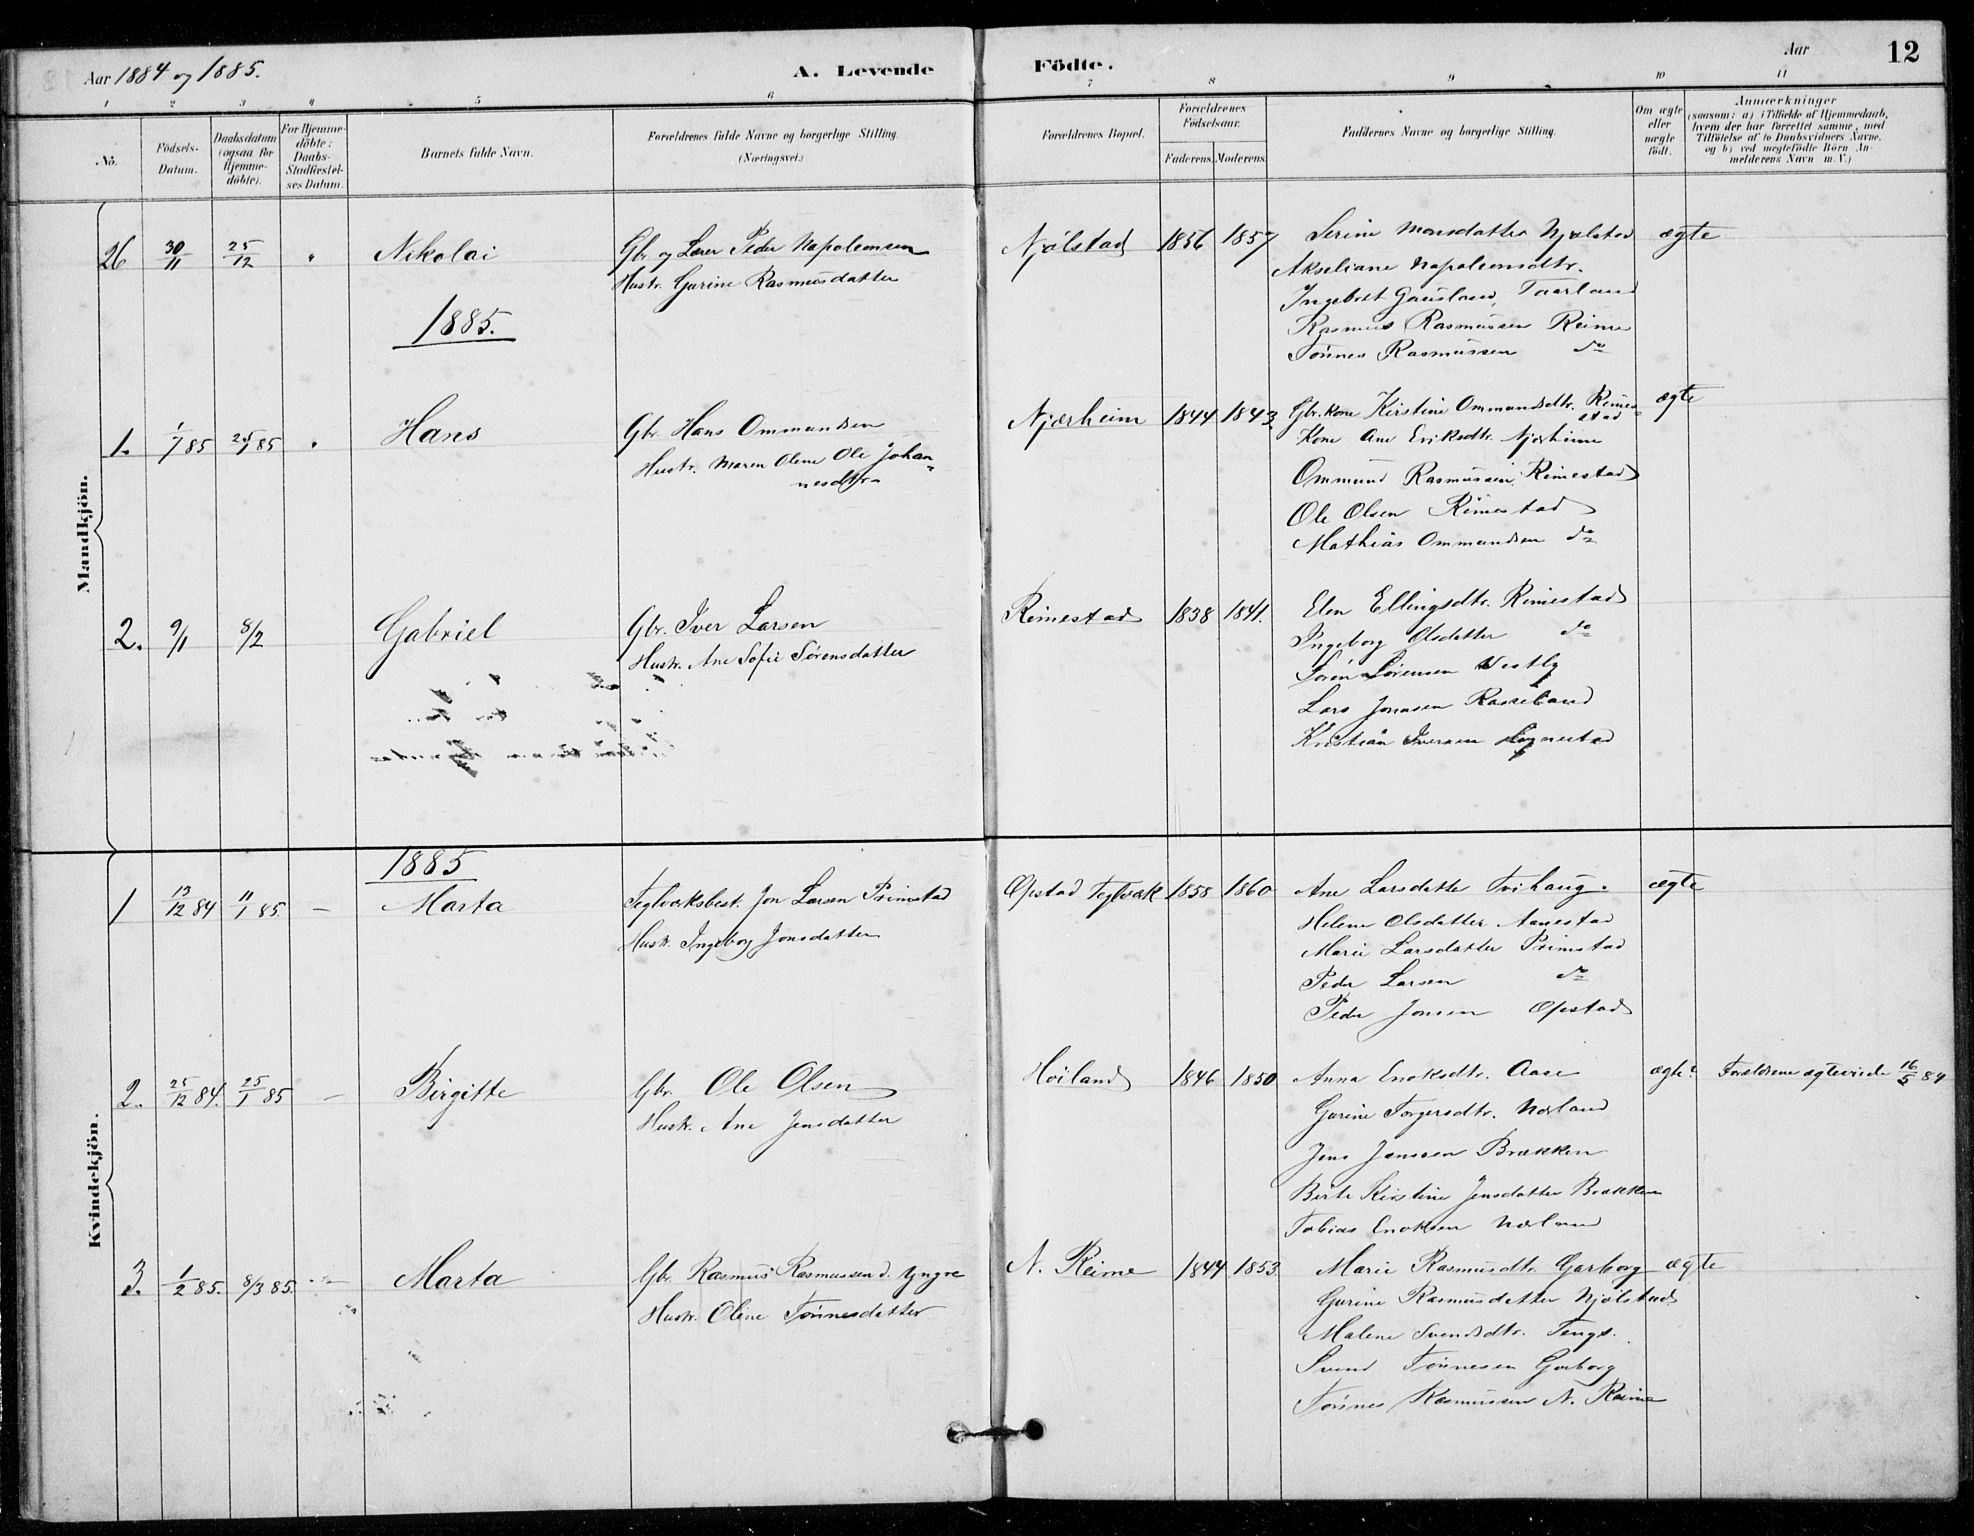 Aar 1884 og 1885.
A. Levende
Födte.
Aar
12
1 2 3 4 5 6 7 8 9 10 11
No.
Födsels-
Datum.
Daabsdatum
(ogsaa for
Hjemme-
döbte).
For Hjemme-
döbte:
Daabs-
Stadfæstel-
ses Datum.
Barnets fulde Navn.
Forældrenes fulde Navne og borgerlige Stilling.
(Næringsvei.)
Forældrenes Bopæl.
Forældrenes
Födselsaar.
Faderens. Moderens.
Faddernes Navne og borgerlige Stilling.
Om ægte
eller
uægte
födt.
Anmærkninger
(saasom: a) i Tilfælde af Hjemmedaab,
hvem der har forrettet samme, med
Tilföielse af to Daabsvidners Navne,
og b) ved uægtefödte Börn An-
melderens Navn m. V.)
Mandkjön.
26 30/11 25/12 " Nikolai
Gbr. og Lærer Peder Napoleonsen
Hustr. Gurine Rasmusdatter
Njølstad 1856 1857
Serine Monsdatter Njølstad
Akseliane Napoleonsdtr.
Ingebret Gausland, Taarland
Rasmus Rasmussen Reime
Tønnes Rasmussen do
ægte
1885.
1. 1/1 85 25/1 85 " Hans
Gbr. Hans Ommundsen
Hustr. Maren Olene Ole Johan-
nesdtr.
Njærheim 1844 1843
Gbr.kone Kirstine Ommundsdtr. Rimes-
tad
Kone Ane Eriksdtr. Njærheim
Ommund Rasmussen Rimestad
Ole Olsen Rimestad
Mathias Ommundsen do
ægte
2. 9/11 8/2 Gabriel
Gbr. Iver Larsen
Hustr. Ane Sofie Sørensdatter
Reimestad 1838 1841.
Elen Ellingsdtr. Rimestad
Ingeborg Olsdatter do
Søren Sørensen Vestly
Lars Jonasen
Kristian Iversen
Kvindekjön.
1885
1 13/12 84 11/1 85 — Marta
Teglværksbest. Jon Larsen Primstad
Hustr. Ingeborg Jonsdatter
Opstad Teglværk 1858 1860
Ane Larsdatter Tvihaug.
Helene Olsdatter Aanestad
Marie Larsdatter Primstad
Peder Larsen do
Peder Jonsen Opstad
ægte
2. 25/12 84. 25/1 85 — Birgitte
Gbr. Ole Olsen
Hustr. Ane Jensdatter
Høiland 1846 1850
Anna Enoksdtr. Aase
Gurine Torgersdtr. Nærland
Jens Jensen Brækken
Berte Kirstine Jensdatter Brækken
Tobias Enoksen Nærland
ægte
Forældrene ægteviede 16/5 84
3. 1/2 85. 8/3 85. Marta
Gbr. Rasmus Rasmussen d. yngre
Hustr. Olene Tønnesdatter
N. Reime 1844 1853
Marie Rasmusdtr. Garborg
Gurine Rasmusdatter Njølstad
Malene Svendsdtr. Tengs.
Svend Tønnesen Garborg
Tønnes Rasmussen N. Reime
ægte